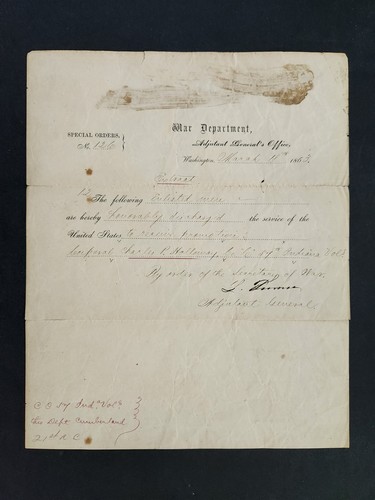 War Department,
SPECIAL ORDERS,
No. 126
Adjutant General's Office,
Washington, March 186
Extract
12 The following Enlisted men
are hereby honorably discharged the service of the
United States to receive promotion:
Corporal Charles R. Holloway, Co 57th Indiana Vols
By order of the Secretary of War.
L. Thomas
Adjutant General
C O 57 Ind. Vols
Dept. Cumberland
21st A C